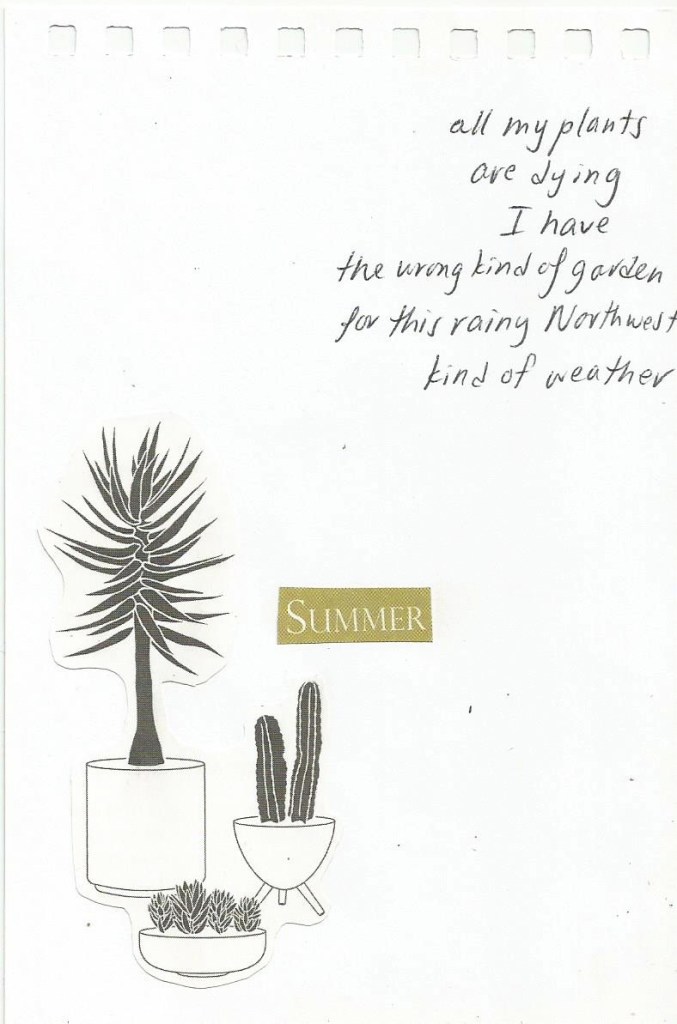 all my plants
are dying
I have
the wrong kind of garden
for this rainy Northwest
kind of weather
SUMMER